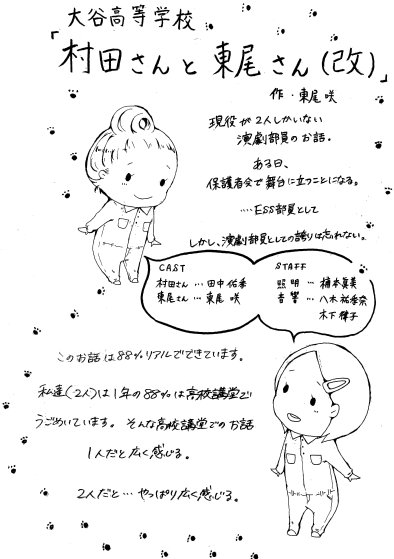 大谷高等学校
「村田さんと東尾さん(改)」
作・東尾 咲
現役が2人しかいない
演劇部員のお話。
ある日、
保護者会で舞台に立つことになる。
……ESS部員として
しかし、演劇部員としての誇りは忘れない。
CAST
村田さん…田中佑季
東尾さん…東尾 咲
STAFF
照明…楠本真美
音響…八木裕季奈
木下律子
このお話は88%リアルでできています。
私達(2人)は1年の88%は高校講堂で
うごめいています。そんな高校講堂でのお話
1人だと広く感じる。
2人だと…やっぱり広く感じる。